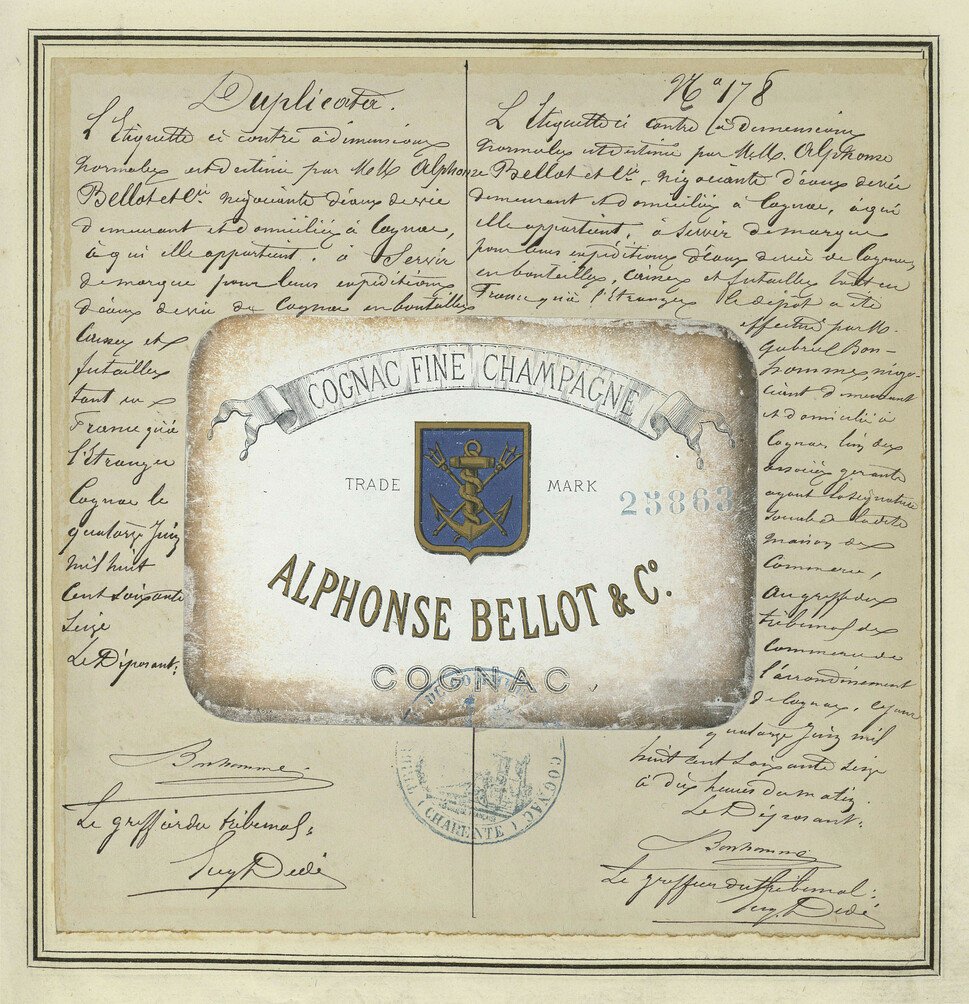 Duplicata.
L'Etiquette ci contre à dimensions
normales est destinée par MM. Alphonse
Bellot et Cie négociants d'eaux de vie
demeurant et domiciliés à Cognac,
à qui elle appartient, à Servir
de marque pour leurs expéditions
d'eaux de vie de Cognac en bouteilles
Caisses et
futailles
tant en
France qu'à
l'Etranger
Cognac le
quatorze Juin
mil huit
Cent soixante
seize
Le Déposant:
Bonhomme
Le greffier du tribunal:
No 178
L'Etiquette ci contre à dimensions
normales est destinée par MM. Alphonse
Bellot et Cie, négociants d'eaux de vie
demeurant et domiciliés à Cognac, à qui
elle appartient, à servir de marque
pour leurs expéditions d'eaux de vie de Cognac
en bouteilles, caisses et futailles tant en
France qu'à l'Etranger le dépôt a été
effectué par M.
Gabriel Bon-
homme, négo-
ciant demeurant
et domicilié à
Cognac, l'un des
associés gérants
ayant la signature
sociale de la dite
maison de
Commerce,
au greffe du
tribunal de
Commerce de
l'arrondissement
de Cognac, ce jour
quatorze Juin mil
huit cent soixante seize
à dix heures du matin.
Le Déposant:
Bonhomme
Le greffier du tribunal:
COGNAC FINE CHAMPAGNE
TRADE MARK
25863
ALPHONSE BELLOT & Co.
COGNAC
COGNAC
(CHARENTE)